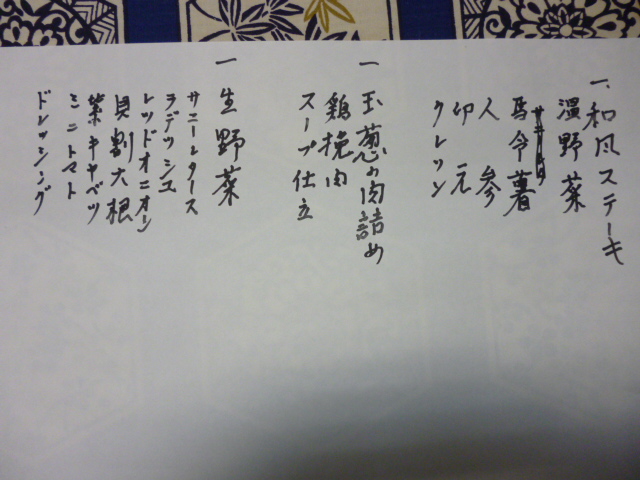 一、和風ステーキ
温野菜
馬令薯
人参
印元
クレソン
一 玉葱の肉詰め
鶏挽肉
スープ仕立
一 生野菜
サニーレタス
ラデッシュ
レッドオニオン
貝割大根
紫キャベツ
ミニトマト
ドレッシング